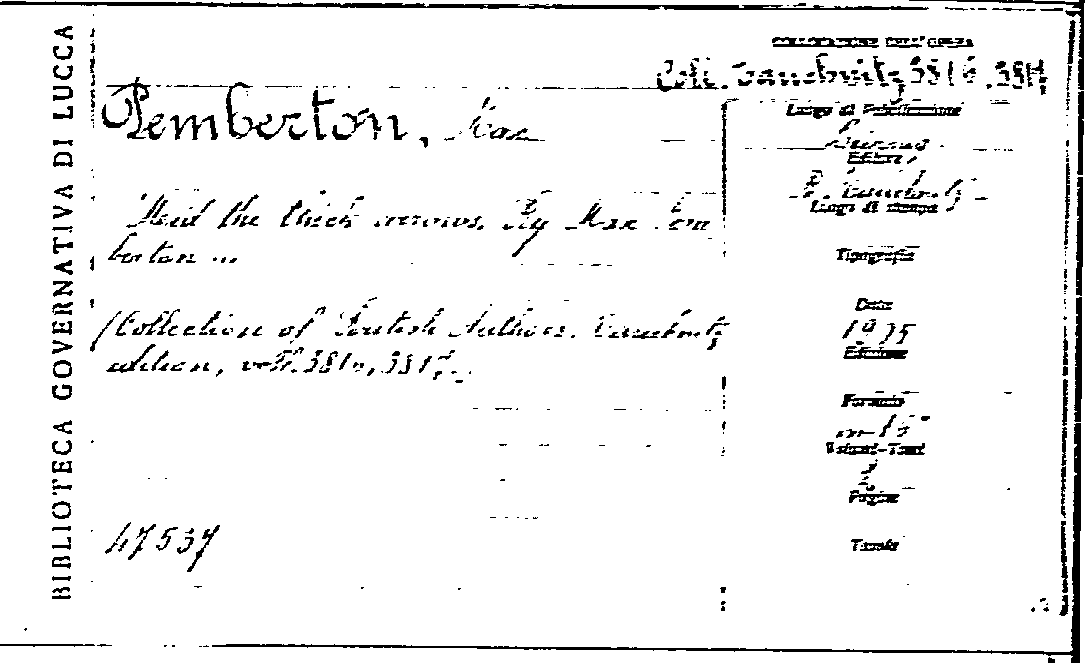 BIBLIOTECA GOVERNATIVA DI LUCCA
Coll. Tauchnitz 3816.3817
Pemberton, Max
Mid the thick arrows. By Max Pem
berton ...
(Collection of British Authors. Tauchnitz
edition, voll. 3816, 3817.
47537
Luogo di Pubblicazione
Editore
B. Tauchnitz
Luogo di stampa
Tipografia
Data
Edizione
Formato
in-16°
Volumi-Tomi
2
Pagine
Tavole